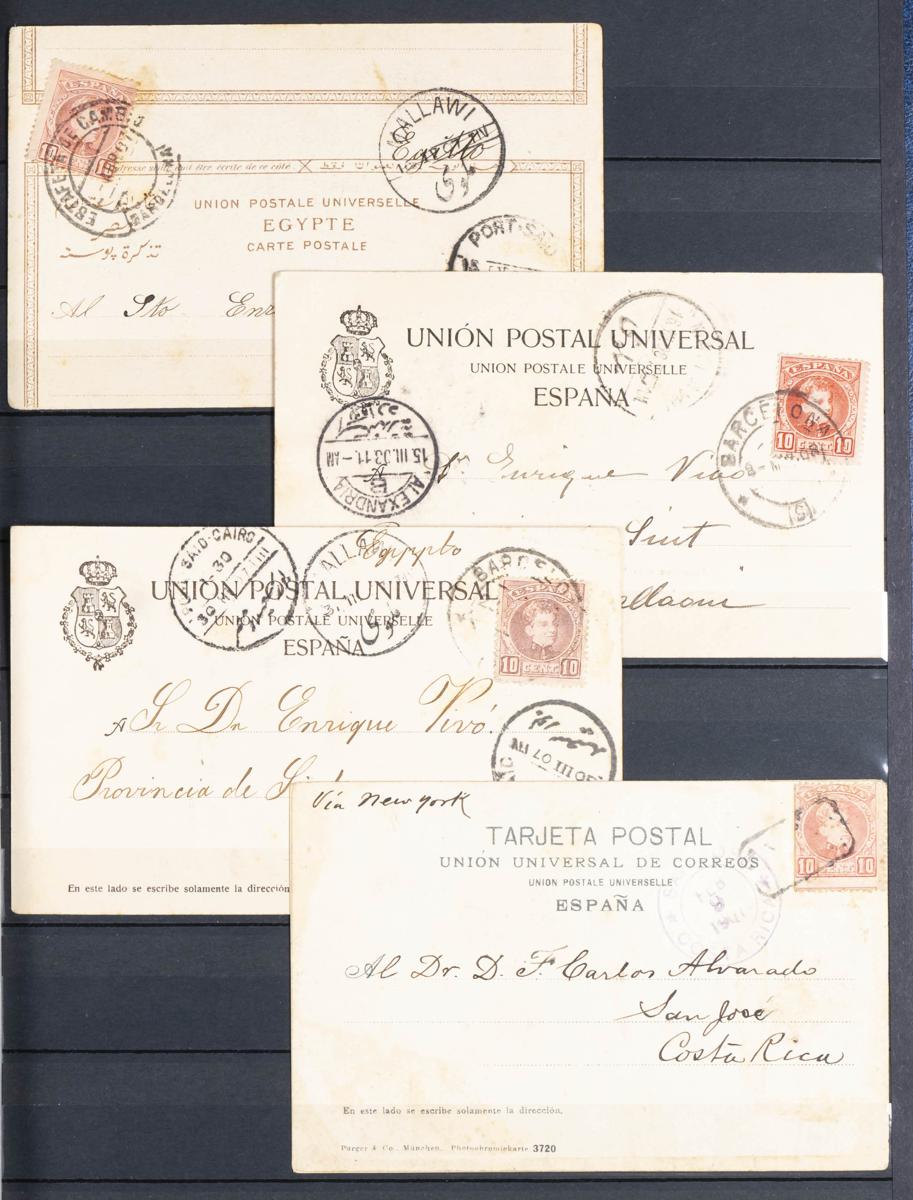 ESPAÑA
10
ESTAFETA DE CAMBIO
MALLAWI
Egitto
UNION POSTALE UNIVERSELLE
EGYPTE
CARTE POSTALE
مصر
تذكرة بوستة
PORT-SAID
Al Sto
UNIÓN POSTAL UNIVERSAL
UNION POSTALE UNIVERSELLE
ESPAÑA
ESPAÑA
10 CENT. 10
BARCELONA
15 III 03 11.-AM
ALEXANDRIA
Sr Enrique Vivó
Siut
SAID-CAIRO
Egypto
UNIÓN POSTAL UNIVERSAL
UNION POSTALE UNIVERSELLE
ESPAÑA
BARCELO
10 CENT. 10
A Sr Dn Enrique Vivó.
Provincia de
30 III 07
En este lado se escribe solamente la dirección
Via New York
TARJETA POSTAL
UNIÓN UNIVERSAL DE CORREOS
UNION POSTALE UNIVERSELLE
ESPAÑA
10 CENT. 10
COSTA RICA
Al Dr. D. F. Carlos Alvarado
San José
Costa Rica
En este lado se escribe solamente la dirección.
Purger & Co., München. Photochromiekarte 3720